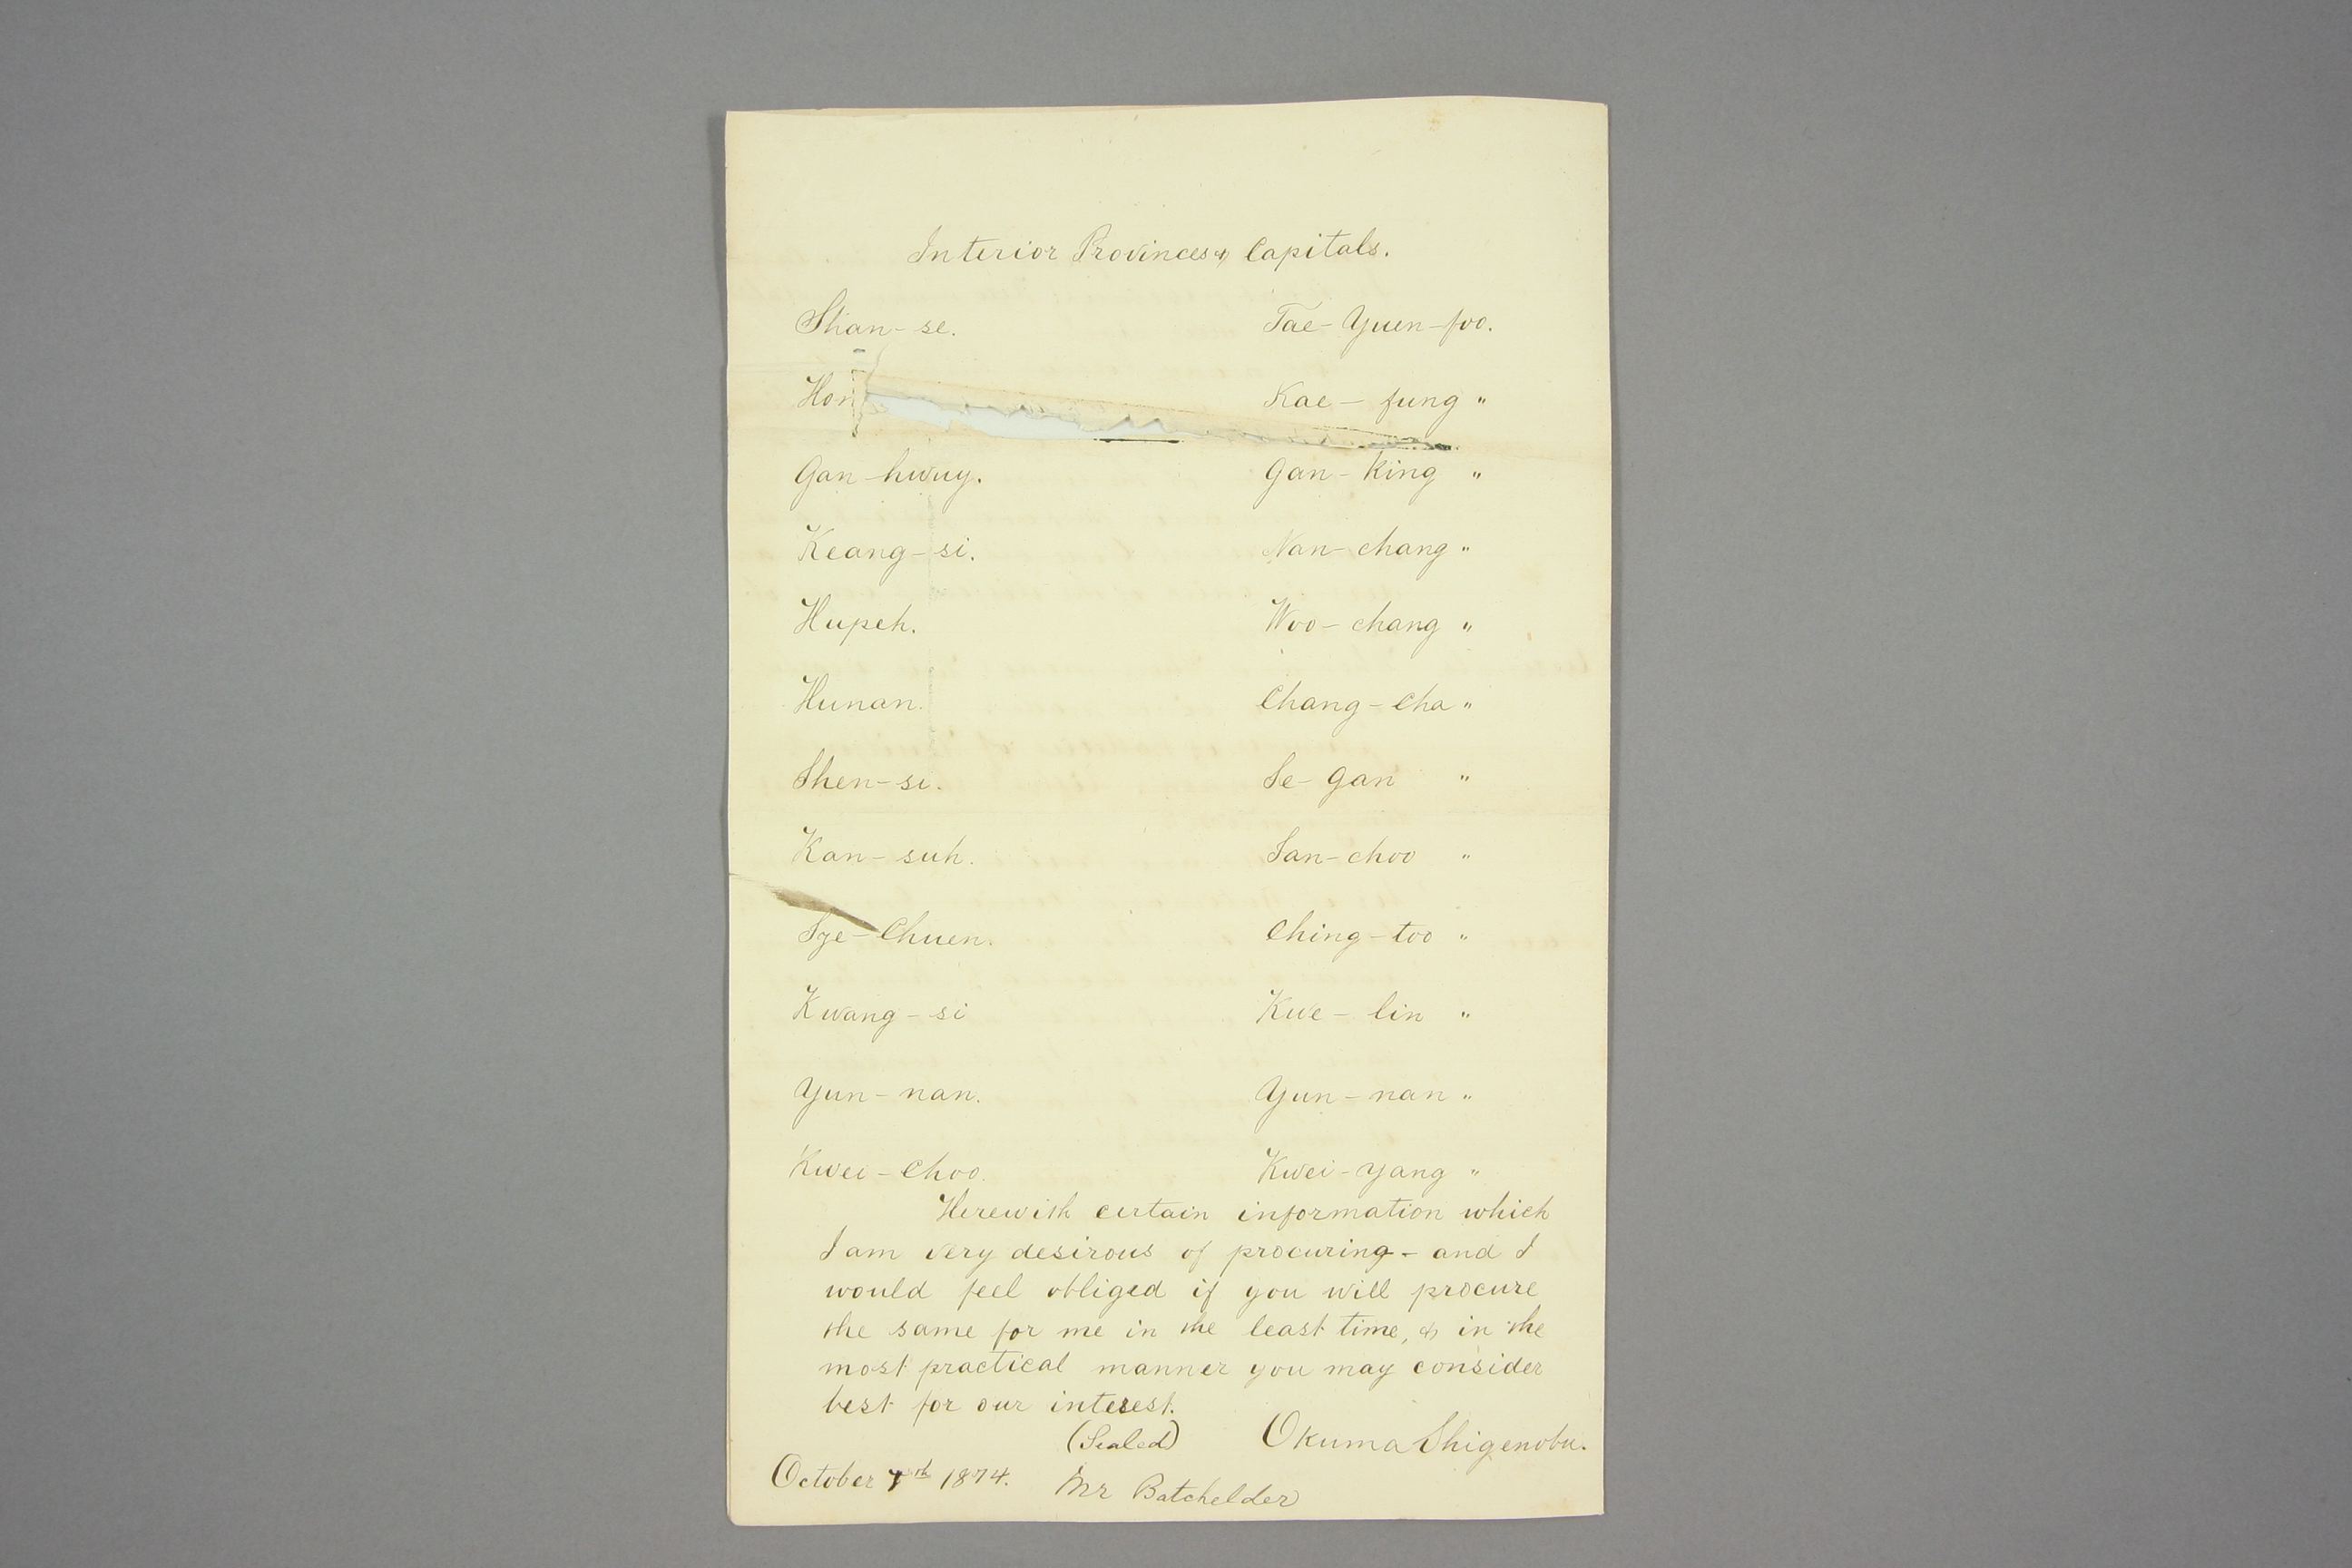 Interior Provinces & Capitals.
Shan-se. Tae-Yuen-foo.
Hon Kae-fung "
Gan-hwuy. Gan-King "
Keang-si. Nan-chang "
Hupeh. Woo-chang "
Hunan. Chang-Cha "
Shen-si. Se-gan "
Kan-suh. San-choo "
Sze-Chuen. Ching-too "
Kwang-si Kwe-lin "
Yun-nan. Yun-nan "
Kwei-Choo. Kwei-yang "
Herewith certain information which
I am very desirous of procuring - and I
would feel obliged if you will procure
the same for me in the least time, & in the
most practical manner you may consider
best for our interest.
(Sealed) Okuma Shigenobu.
October 7th 1874. Mr Batchelder